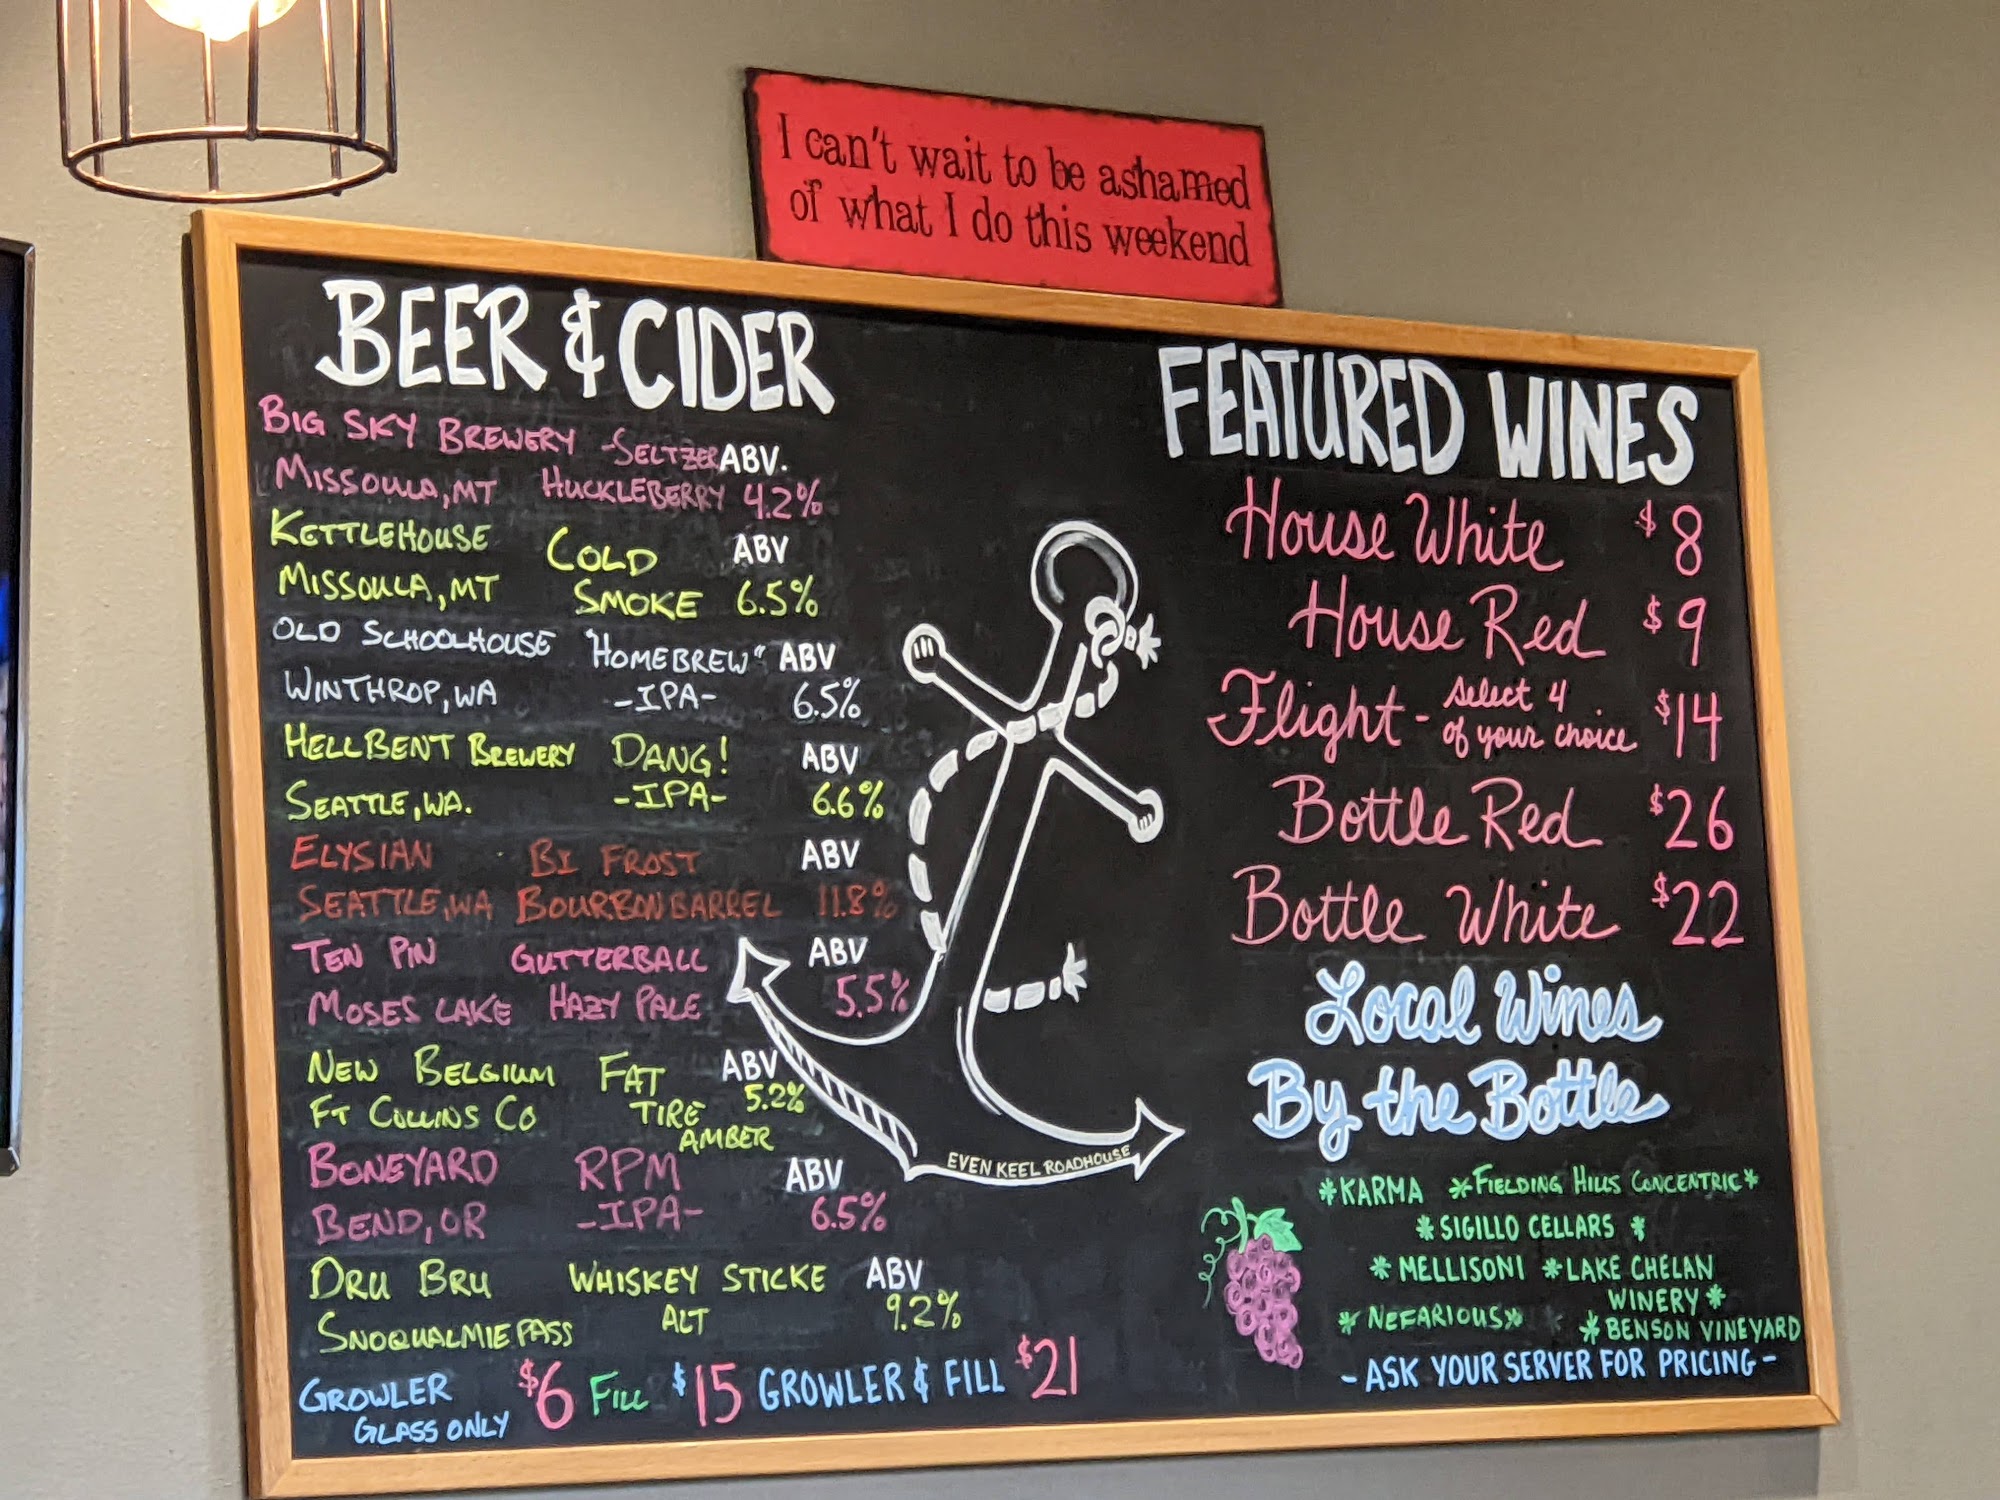 I can't wait to be ashamed
of what I do this weekend
BEER & CIDER
BIG SKY BREWERY -SELTZER ABV.
MISSOULA, MT HUCKLEBERRY 4.2%
KETTLEHOUSE COLD ABV
MISSOULA, MT SMOKE 6.5%
OLD SCHOOLHOUSE "HOMEBREW" ABV
WINTHROP, WA -IPA- 6.5%
HELLBENT BREWERY DANG! ABV
SEATTLE, WA. -IPA- 6.6%
ELYSIAN BI FROST ABV
SEATTLE, WA BOURBON BARREL 11.8%
TEN PIN GUTTERBALL ABV
MOSES LAKE HAZY PALE 5.5%
NEW BELGIUM FAT ABV
FT COLLINS CO TIRE 5.2%
AMBER
BONEYARD RPM ABV
BEND, OR -IPA- 6.5%
DRU BRU WHISKEY STICKE ABV
SNOQUALMIE PASS ALT 9.2%
GROWLER $6 FILL $15 GROWLER & FILL $21
GLASS ONLY
EVEN KEEL ROADHOUSE
FEATURED WINES
House White $8
House Red $9
Flight - select 4 $14
of your choice
Bottle Red $26
Bottle White $22
Local Wines
By the Bottle
*KARMA *FIELDING HILLS CONCENTRIC*
*SIGILLO CELLARS *
*MELLISONI *LAKE CHELAN
WINERY*
*NEFARIOUS* *BENSON VINEYARD
-ASK YOUR SERVER FOR PRICING-